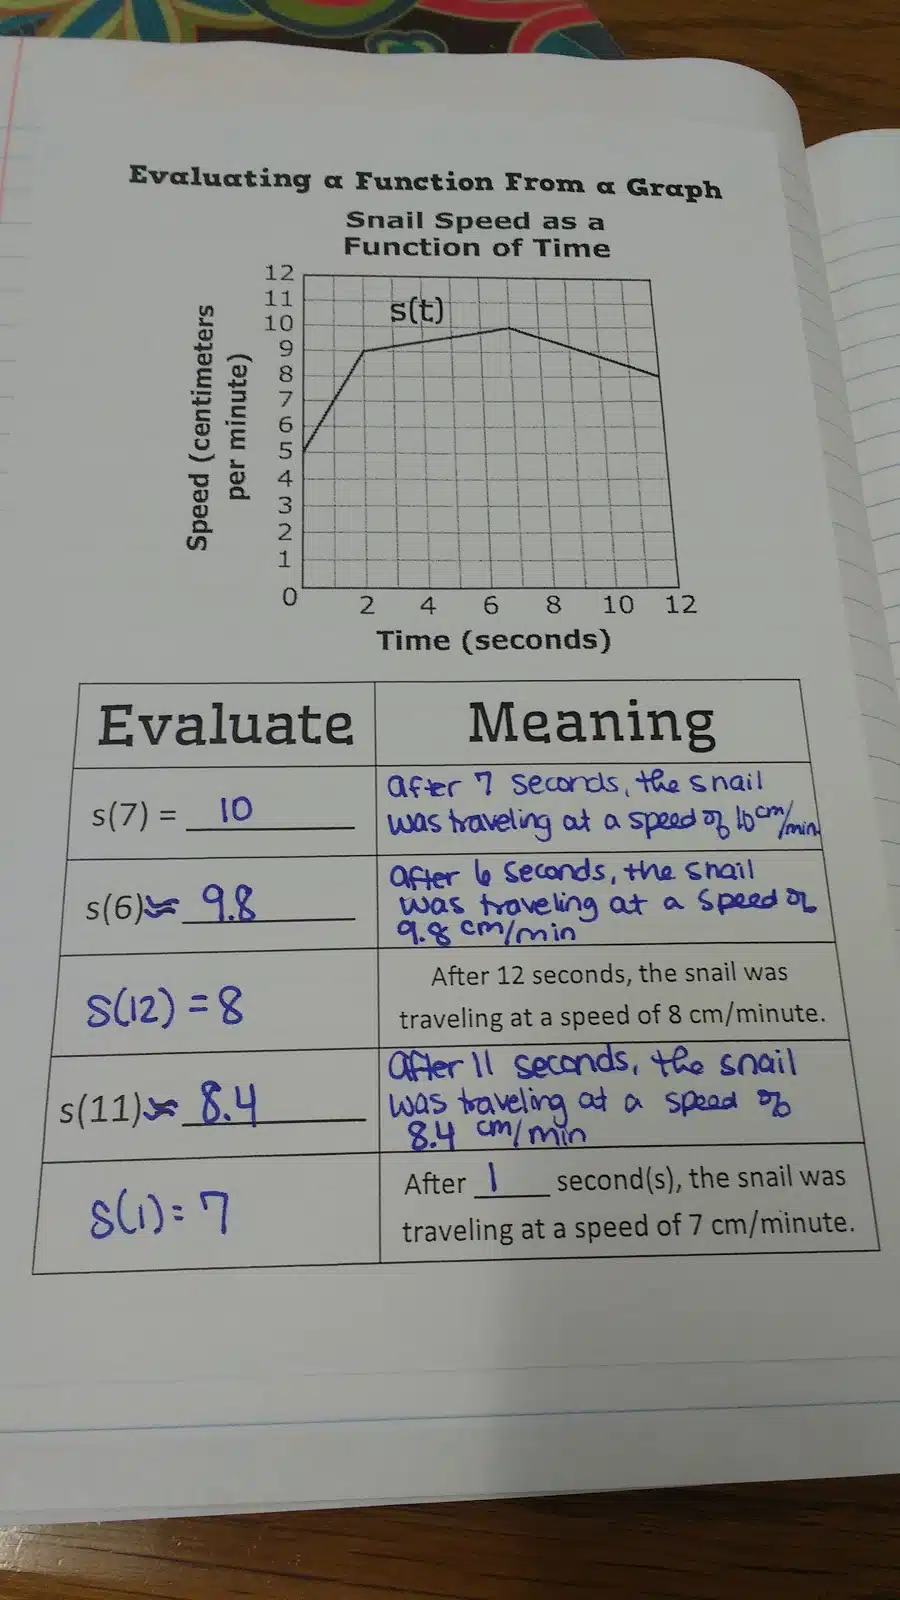 Evaluating a Function From a Graph
Snail Speed as a
Function of Time
s(t)
Speed (centimeters
per minute)
12
11
10
9
8
7
6
5
4
3
2
1
0
2 4 6 8 10 12
Time (seconds)
Evaluate
Meaning
s(7) = 10
After 7 seconds, the snail
was traveling at a speed of 10 cm/min
s(6) ≈ 9.8
After 6 seconds, the snail
was traveling at a speed of
9.8 cm/min
S(12) = 8
After 12 seconds, the snail was
traveling at a speed of 8 cm/minute.
s(11) ≈ 8.4
After 11 seconds, the snail
was traveling at a speed of
8.4 cm/min
S(1) = 7
After 1 second(s), the snail was
traveling at a speed of 7 cm/minute.